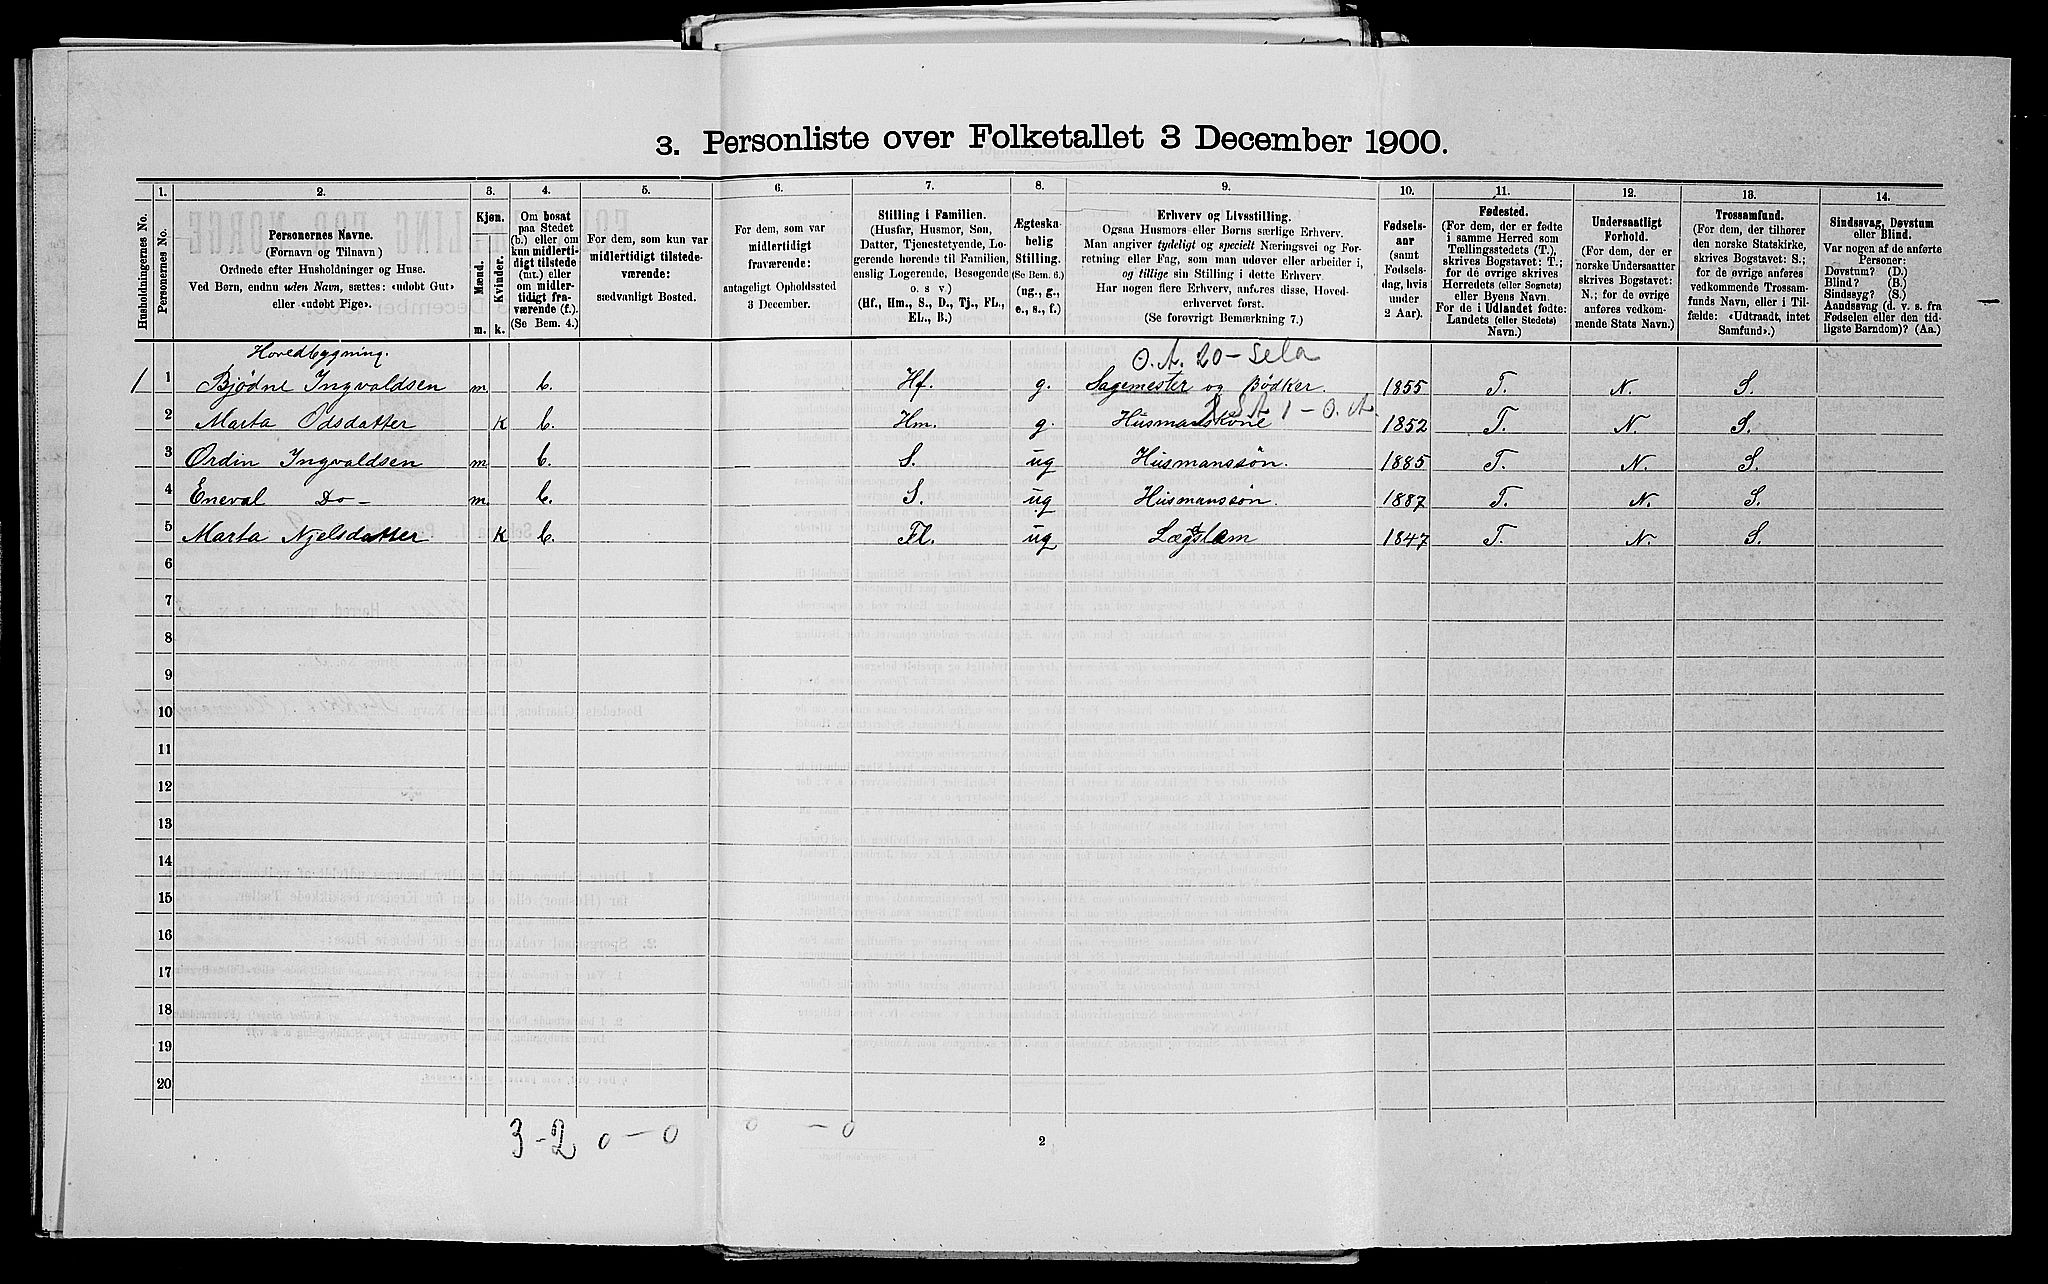 3. Personliste over Folketallet 3 December 1900.
1. 2. 3. 4. 5. 6. 7. 8. 9. 10. 11. 12. 13. 14.
Husholdningernes No.
Personernes No.
Personernes Navne.
(Fornavn og Tilnavn)
Ordnede efter Husholdninger og Huse.
Ved Børn, endnu uden Navn, sættes: «udøbt Gut»
eller «udøbt Pige».
Kjøn.
Mænd.
Kvinder.
m. k.
Om bosat
paa Stedet
(b.) eller om
kun midlerti-
digt tilstede
(mt.) eller
om midler-
tidigt fra-
værende (f.).
(Se Bem. 4.)
For dem, som kun var
midlertidigt tilstede-
værende:
sædvanligt Bosted.
For dem, som var
midlertidigt
fraværende:
antageligt Opholdssted
3 December.
Stilling i Familien.
(Husfar, Husmor, Søn,
Datter, Tjenestetyende, Lo-
gerende hørende til Familien,
enslig Logerende, Besøgende
o. s. v.)
(Hf., Hm., S., D., Tj., FL.,
EL., B.)
Ægteska-
belig
Stilling.
(Se Bem. 6.)
(ug., g.,
e., s., f.)
Erhverv og Livsstilling.
Ogsaa Husmors eller Børns særlige Erhverv.
Man angiver tydeligt og specielt Næringsvei og For-
retning eller Fag, som man udøver eller arbeider i,
og tillige sin Stilling i dette Erhverv.
Har nogen flere Erhverv, anføres disse, Hoved-
erhvervet først.
(Se forøvrigt Bemærkning 7.)
Fødsels-
aar
(samt
Fødsels-
dag, hvis
under
2 Aar).
Fødested.
(For dem, der er fødte
i samme Herred som
Tællingsstedets (T.),
skrives Bogstavet: T.;
for de øvrige skrives
Herredets (eller Sognets)
eller Byens Navn.
For de i Udlandet fødte:
Landets (eller Stedets)
Navn.)
Undersaatligt
Forhold.
(For dem, der er
norske Undersaatter
skrives Bogstavet:
N.; for de øvrige
anføres vedkom-
mende Stats Navn.)
Trossamfund.
(For dem, der tilhører
den norske Statskirke,
skrives Bogstavet: S.;
for de øvrige anføres
vedkommende Trossam-
funds Navn, eller i Til-
fælde: «Udtraadt, intet
Samfund».)
Sindssvag, Døvstum
eller Blind.
Var nogen af de anførte
Personer:
Døvstum? (D.)
Blind? (B.)
Sindssyg? (S.)
Aandssvag (d. v. s. fra
Fødselen eller den tid-
ligste Barndom)? (Aa.)
Hovedbygning.
O. A. 20 - Sela
1 1 Bjødne Ingvaldsen m. b. Hf. g. Sagemester og Bødker. 1855 T. N. S.
1 - O. A.
2 Marta Odsdatter k b. Hm. g. Husmanskone 1852 T. N. S.
3 Ordin Ingvaldsen m. b. S. ug Husmanssøn. 1885 T. N. S.
4 Eneval Do - m. b. S. ug Husmanssøn. 1887 T. N. S.
5 Marta Njelsdatter k b. Fl. ug Lægslem 1847 T. N. S.
6
7
8
9
10
11
12
13
14
15
16
17
18
19
20
3 - 2 0 - 0 0 - 0
2